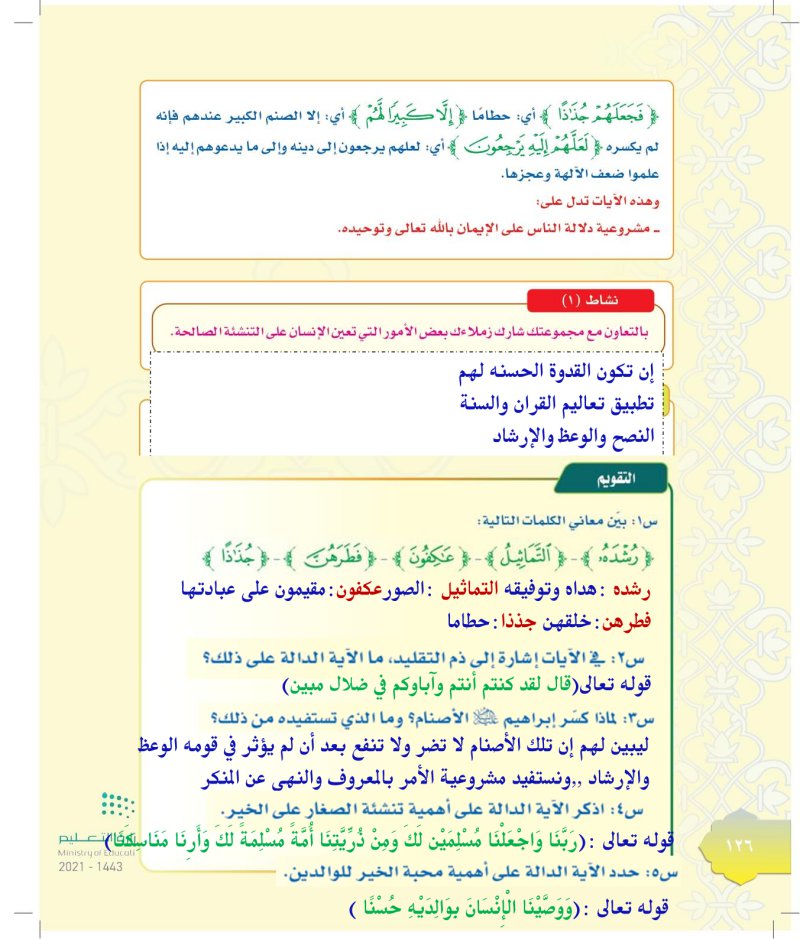 ﴿فَجَعَلَهُمْ جُذَٰذًا﴾ أي: حطامًا ﴿إِلَّا كَبِيرًا لَّهُمْ﴾ أي: إلا الصنم الكبير عندهم فإنه
لم يكسره ﴿لَعَلَّهُمْ إِلَيْهِ يَرْجِعُونَ﴾ أي: لعلهم يرجعون إلى دينه وإلى ما يدعوهم إليه إذا
علموا ضعف الآلهة وعجزها.
وهذه الآيات تدل على:
ــ مشروعية دلالة الناس على الإيمان بالله تعالى وتوحيده.
نشاط (١)
بالتعاون مع مجموعتك شارك زملاءك بعض الأمور التي تعين الإنسان على التنشئة الصالحة.
إن تكون القدوة الحسنه لهم
تطبيق تعاليم القران والسنة
النصح والوعظ والإرشاد
التقويم
س١: بيّن معاني الكلمات التالية:
﴿رُشْدَهُۥ﴾ - ﴿ٱلتَّمَاثِيلُ﴾ - ﴿عَٰكِفُونَ﴾ - ﴿فَطَرَهُنَّ﴾ - ﴿جُذَٰذًا﴾
رشده :هداه وتوفيقه التماثيل :الصورعكفون:مقيمون على عبادتها
فطرهن:خلقهن جذذا:حطاما
س٢: في الآيات إشارة إلى ذم التقليد، ما الآية الدالة على ذلك؟
قوله تعالى(قال لقد كنتم أنتم وآباوكم في ضلال مبين)
س٣: لماذا كسّر إبراهيم ﷺ الأصنام؟ وما الذي تستفيده من ذلك؟
ليبين لهم إن تلك الأصنام لا تضر ولا تنفع بعد أن لم يؤثر في قومه الوعظ
والإرشاد ,,ونستفيد مشروعية الأمر بالمعروف والنهى عن المنكر
س٤: اذكر الآية الدالة على أهمية تنشئة الصغار على الخير.
قوله تعالى :(رَبَّنَا وَاجْعَلْنَا مُسْلِمَيْن لَكَ وَمِنْ ذُرِّيَّتِنَا أُمَّةً مُسْلِمَةً لَكَ وَأَرِنَا مَنَاسِكَنَا)
س٥: حدد الآية الدالة على أهمية محبة الخير للوالدين.
قوله تعالى :(وَوَصَّيْنَا الْإِنْسَانَ بِوَالِدَيْهِ حُسْنًا )
١٢٦
Ministry of Educati
2021 - 1443